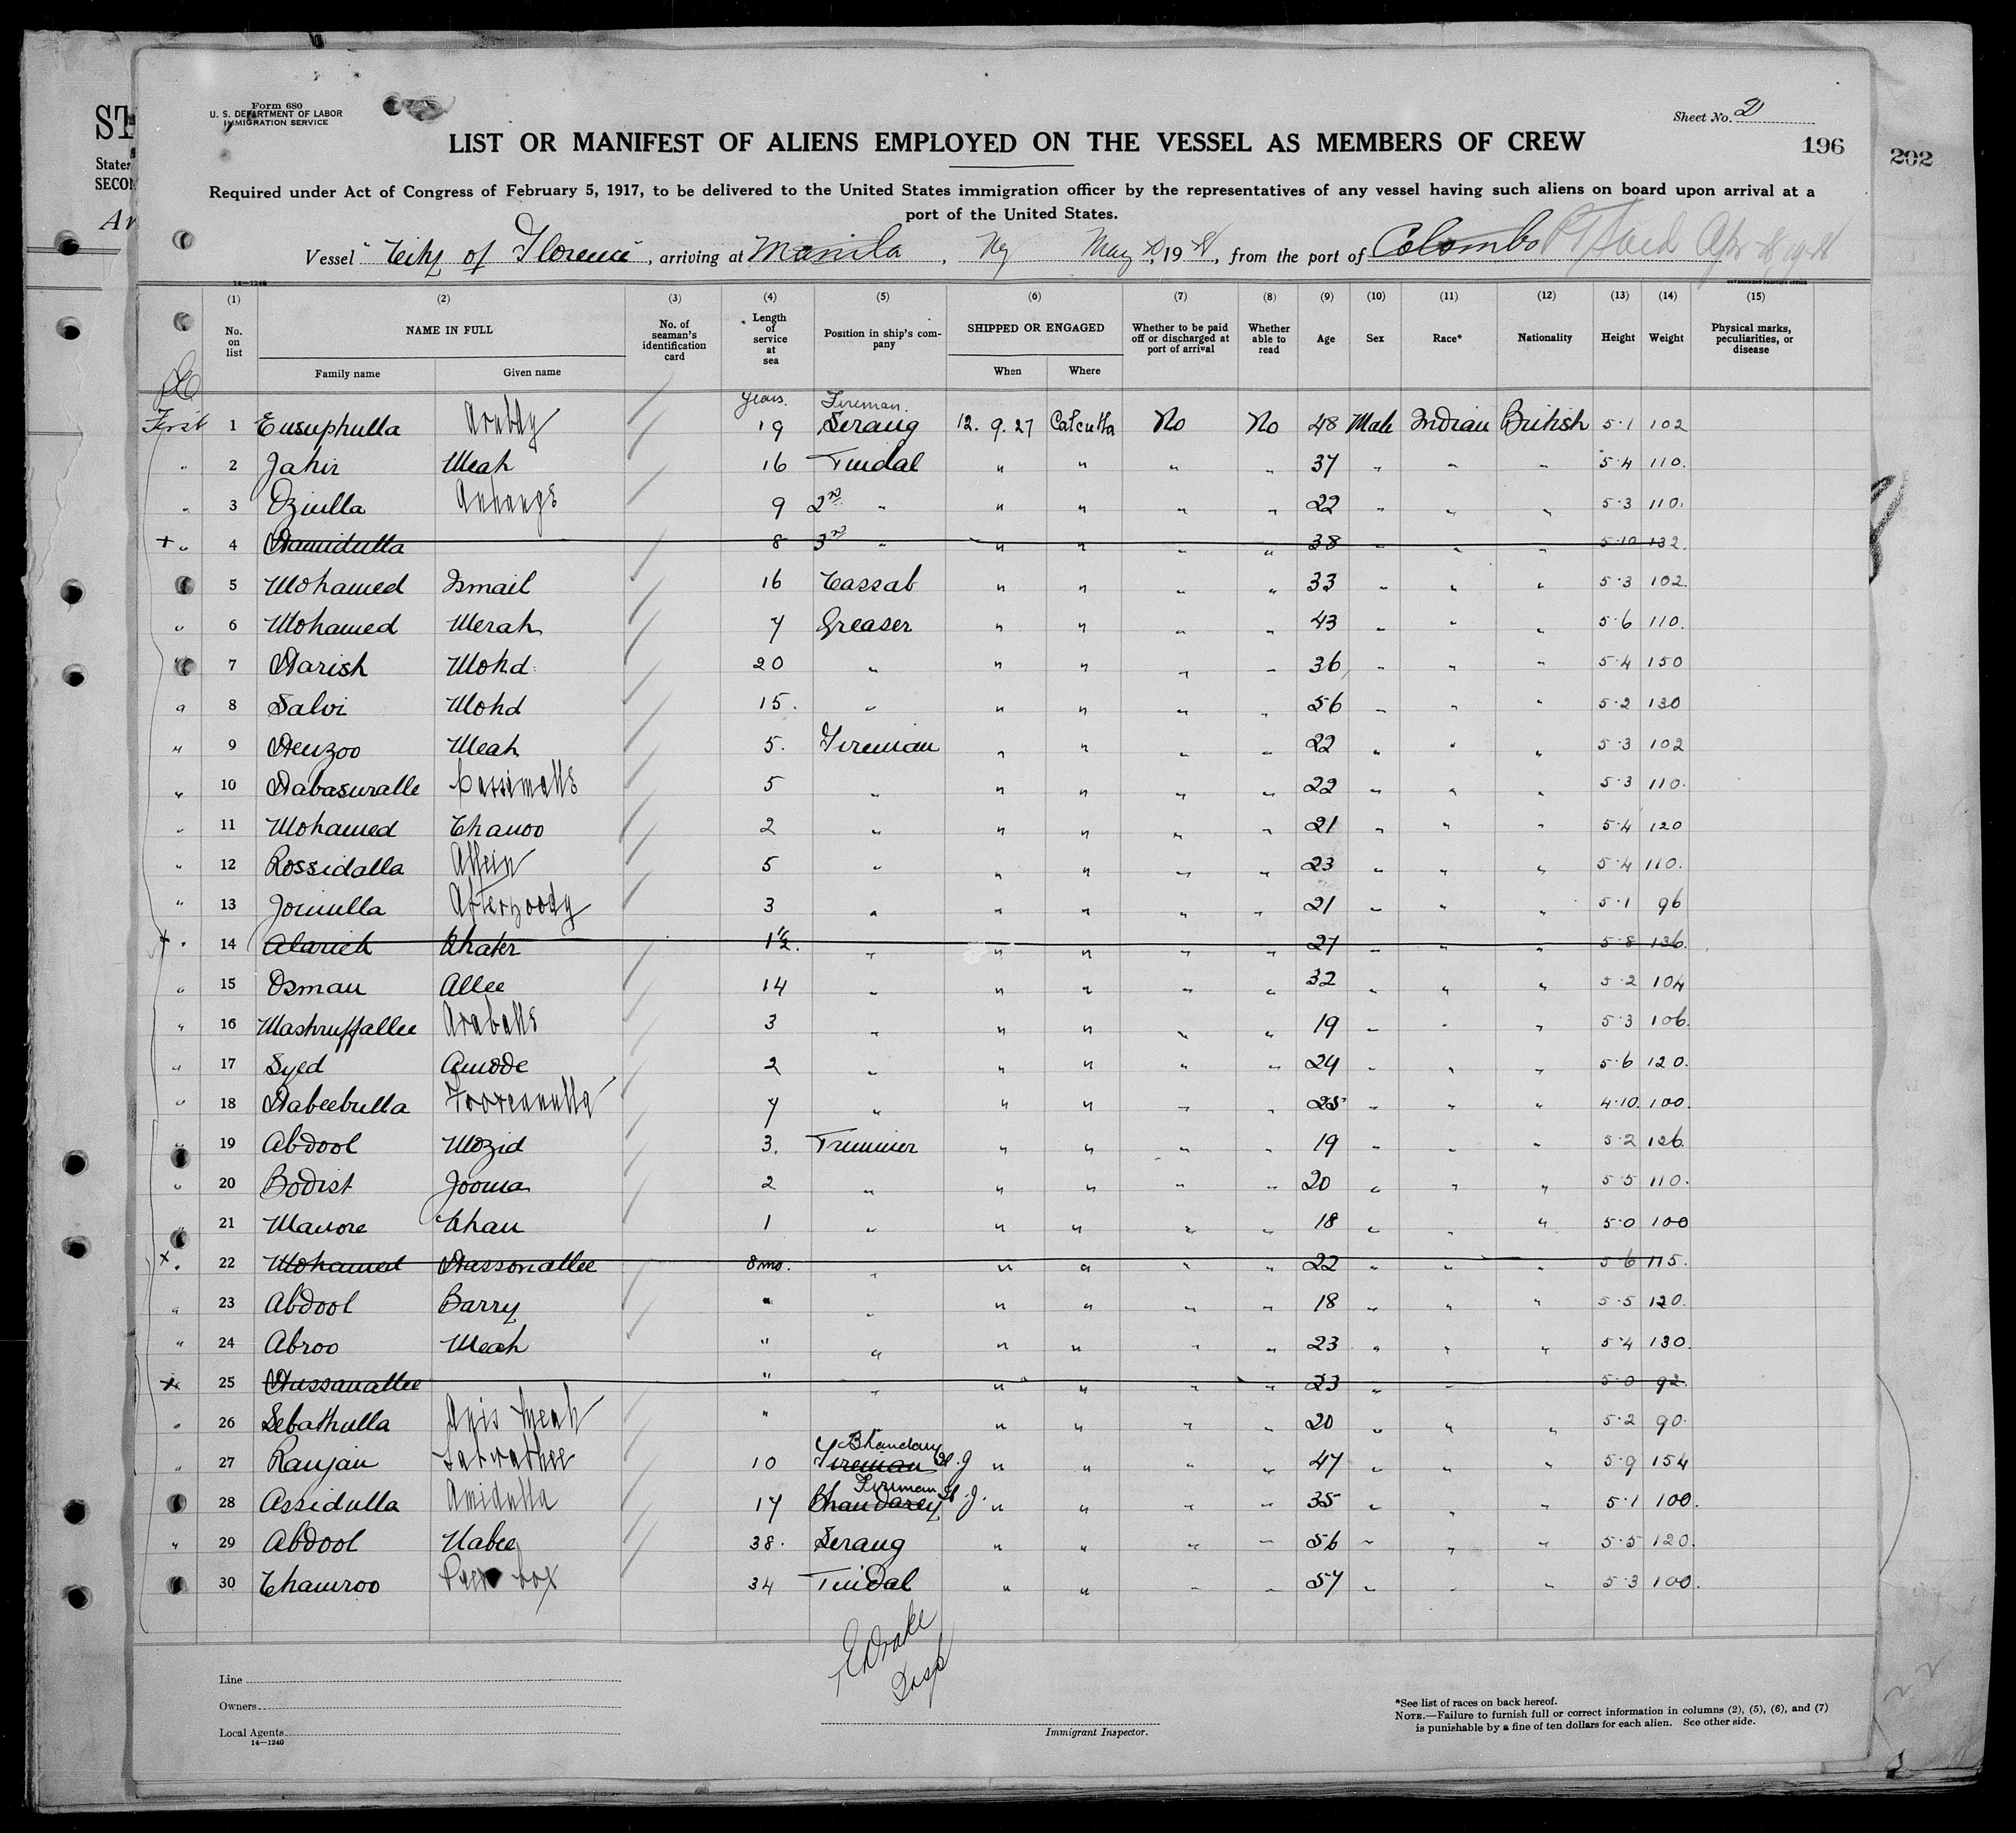 ST
States
SECON
Ar
Form 680
U. S. DEPARTMENT OF LABOR
IMMIGRATION SERVICE
Sheet No. 2
LIST OR MANIFEST OF ALIENS EMPLOYED ON THE VESSEL AS MEMBERS OF CREW
196
202
Required under Act of Congress of February 5, 1917, to be delivered to the United States immigration officer by the representatives of any vessel having such aliens on board upon arrival at a
port of the United States.
Vessel "City of Florence", arriving at Manila, Ny May, 19, from the port of Colombo
14—1240
(1) (2) (3) (4) (5) (6) (7) (8) (9) (10) (11) (12) (13) (14) (15)
No. on list NAME IN FULL No. of seaman's identification card Length of service at sea Position in ship's company SHIPPED OR ENGAGED Whether to be paid off or discharged at port of arrival Whether able to read Age Sex Race* Nationality Height Weight Physical marks, peculiarities, or disease
Family name Given name When Where
years. Fireman.
First 1 Eusuphulla 19 Serang 12. 9. 27 Calcutta No No 48 Male Indian British 5.1 102
" 2 Jahir Meah 16 Tindal " " " " 37 " " " 5.4 110.
" 3 Oziulla 9 2nd " " " " " 22 " " " 5.3 110.
+ " 4 Hamidulla 8 3rd " " " " " 38 " " " 5.10 132.
5 Mohamed Ismail 16 Cassab " " " " 33 " " " 5.3 102.
" 6 Mohamed Merah 7 Greaser " " " " 43 " " " 5.6 110.
" 7 Harish Mohd. 20 " " " " " 36 " " " 5.4 150
" 8 Salvi Mohd 15. " " " " " 56 " " " 5.2 130
" 9 Henzoo Meah 5. Fireman " " " " 22 " " " 5.3 102
" 10 Habasuralle 5 " " " " " 22 " " " 5.3 110.
" 11 Mohamed Chanoo 2 " " " " " 21 " " " 5.4 120
" 12 Rossidalla 5 " " " " " 23 " " " 5.4 110.
" 13 Joinulla 3 " " " " " 21 " " " 5.1 96
+ " 14 Alarick Khater 1½. " " " " " 27 " " " 5.8 136.
" 15 Osman Allee 14 " " " " " 32 " " " 5.2 104
" 16 Mashruffallee 3 " " " " " 19 " " " 5.3 106.
" 17 Syed Amode 2 " " " " " 24 " " " 5.6 120.
" 18 Habeebulla 7 " " " " " 25 " " " 4.10. 100.
" 19 Abdool Mozid 3. Trimmer " " " " 19 " " " 5.2 126.
" 20 Bodist Jooma 2 " " " " " 20 " " " 5.5 110.
" 21 Manore Khan 1 " " " " " 18 " " " 5.0 100
+ " 22 Mohamed Hassonallee 8 mo. " " " " " 22 " " " 5.6 115.
" 23 Abdool Barry " " " " " " 18 " " " 5.5 120.
" 24 Abroo Meah " " " " " " 23 " " " 5.4 130.
+ 25 Hussanallee " " " " " " 23 " " 5.0 92.
" 26 Sebathulla Anis Meah " " " " " 20 " " " 5.2 90.
Bhandary
" 27 Ranjan 10 Fireman " " " " 47 " " " 5.9 154
Fireman
28 Assidulla Amidulla 17 Bhandarey " " " " 35 " " " 5.1 100.
" 29 Abdool Nabee 38. Serang " " " " 56 " " " 5.5 120.
30 Chamroo 34 Tindal " " " " 57 " " " 5.3 100.
Line
Owners
Local Agents
14—1240
Drake
Insp
Immigrant Inspector.
*See list of races on back hereof.
NOTE.—Failure to furnish full or correct information in columns (2), (5), (6), and (7)
is punishable by a fine of ten dollars for each alien. See other side.